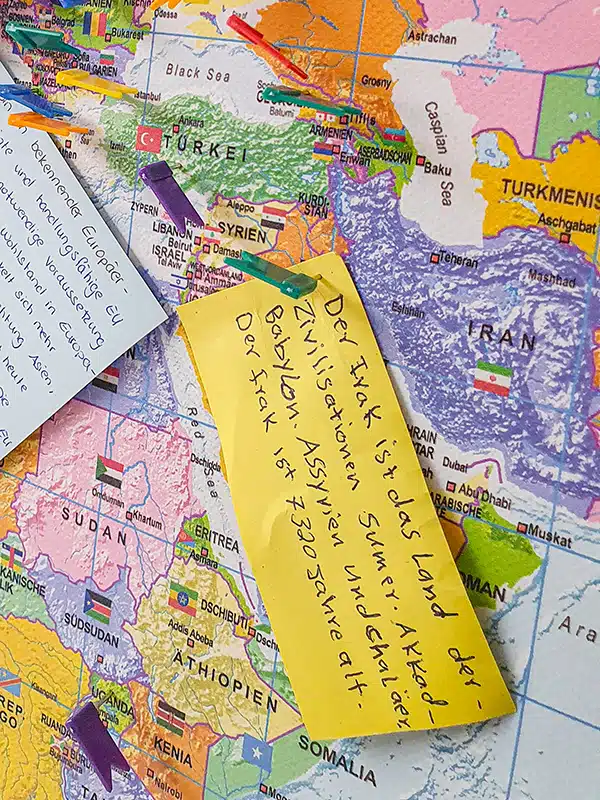 Odessa
Astrachan
Belgrad
Bukarest
BULGARIEN
Black Sea
Grosny
Caspian Sea
Tiflis
Batumi
ARMENIEN
Eriwan
ASERBAIDSCHAN
Baku
Ankara
Izmir
TÜRKEI
TURKMENIS
Aschgabat
KURDI-
STAN
ZYPERN
Aleppo
SYRIEN
LIBANON
Beirut
Damas
ISRAEL
Tel Aviv
Teheran
Mashhad
Esfahan
IRAN
bekennender Europäer
und handlungsfähige EU
notwendige Voraussetzung
Wohlstand in Europa
sich mehr
Asien,
heute
EU
Der Irak ist das Land der-
Zivilisationen Sumer. Akkad-
Babylon. Assyrien und chaläer
Der Irak ist 7320 Jahre alt-
Red Sea
Dschidda
Dubai
Abu Dhabi
ARABISCHE
Muskat
OMAN
Ara
Omdurman
Khartum
SUDAN
ERITREA
Asmara
SÜDSUDAN
DSCHIBUTI
Dschi
Addis Abeba
ÄTHIOPIEN
KANISCHE
LIK
Kisangani
REP
GO
UGANDA
RUANDA
BURU
KENIA
Nairobi
SOMALIA
TA